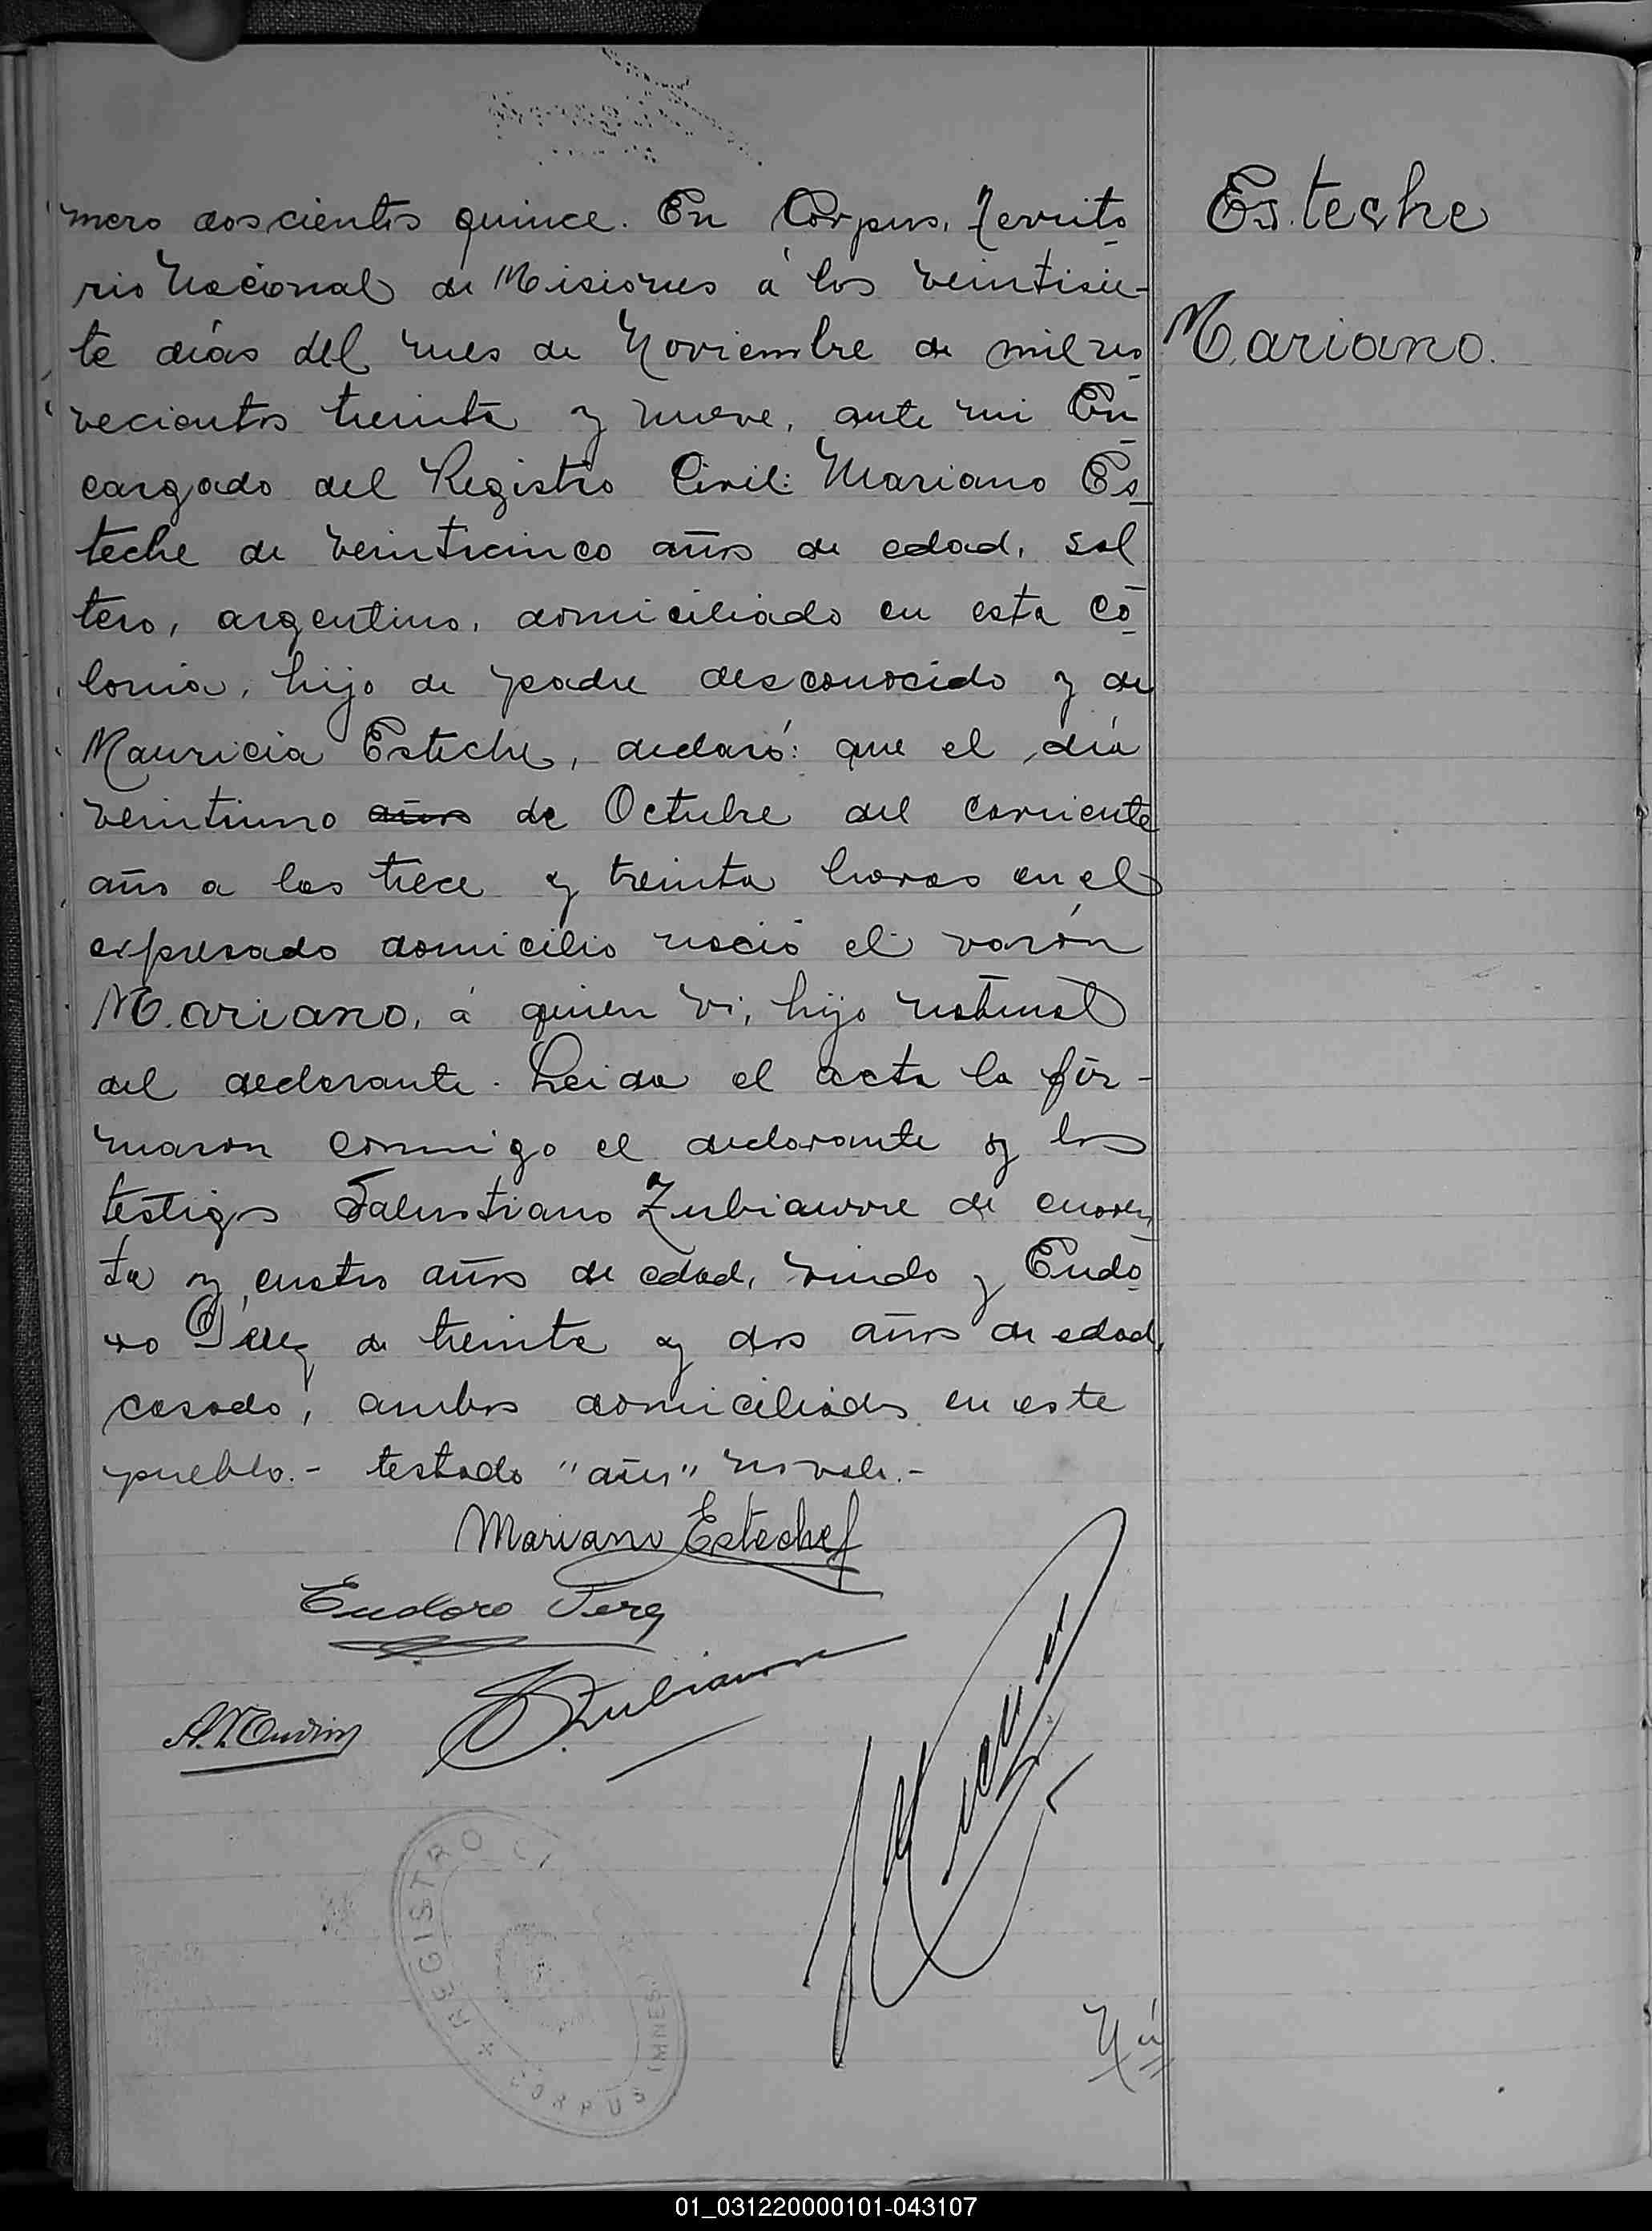 mero doscientos quince. En Corpus, Territo
rio Nacional de Misiones á los veintisie-
te días del mes de Noviembre de mil no
vecientos treinta y nueve, ante mi En
cargado del Registro Civil: Mariano Es
teche de veinticinco años de edad, sol
tero, argentino, domiciliado en esta Co
lonia, hijo de padre desconocido y de
Mauricia Esteche, declaró: que el día
veintiuno años de Octubre del corriente
año a las trece y treinta horas en el
expresado domicilio nació el varón
Mariano, á quien vi, hijo natural
del declarante. Leida el acta la fir-
maron conmigo el declarante y los
testigos Salustiano Zubiaurre de cuaren
ta y cuatro años de edad, viudo y Eudo
ro Pérez de treinta y dos años de edad,
casado, ambos domiciliados en este
pueblo.- testado "años" no vale.-
Esteche
Mariano.
Mariano Esteche
Eudoro Perez
S Zubiaurre
REGISTRO CI
CORPUS (MNES)
Nú
01_031220000101-043107